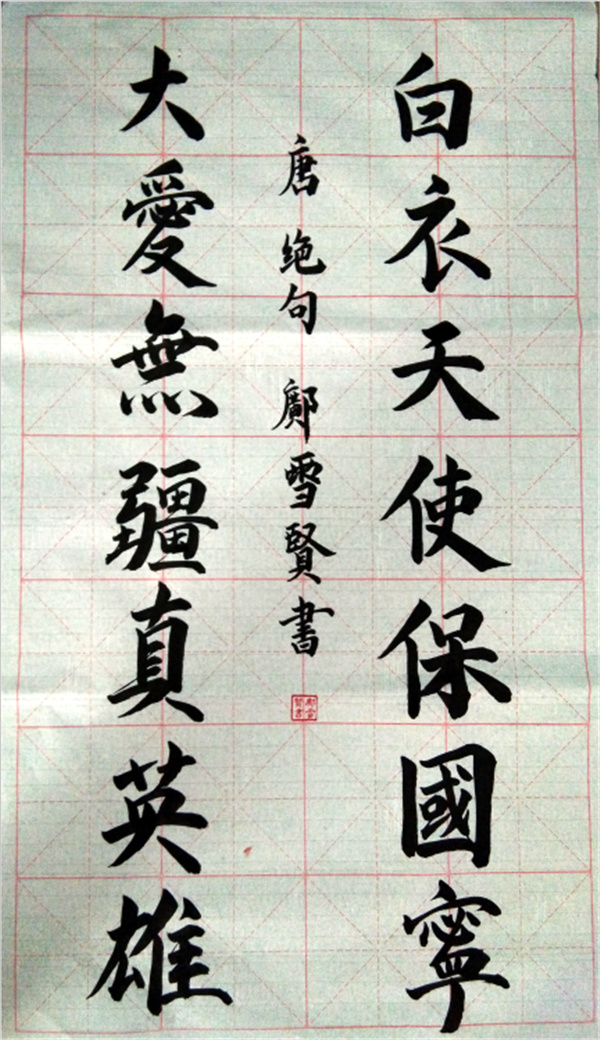 白衣天使保國寧
大愛無疆真英雄
唐 绝句 鄺雪賢書